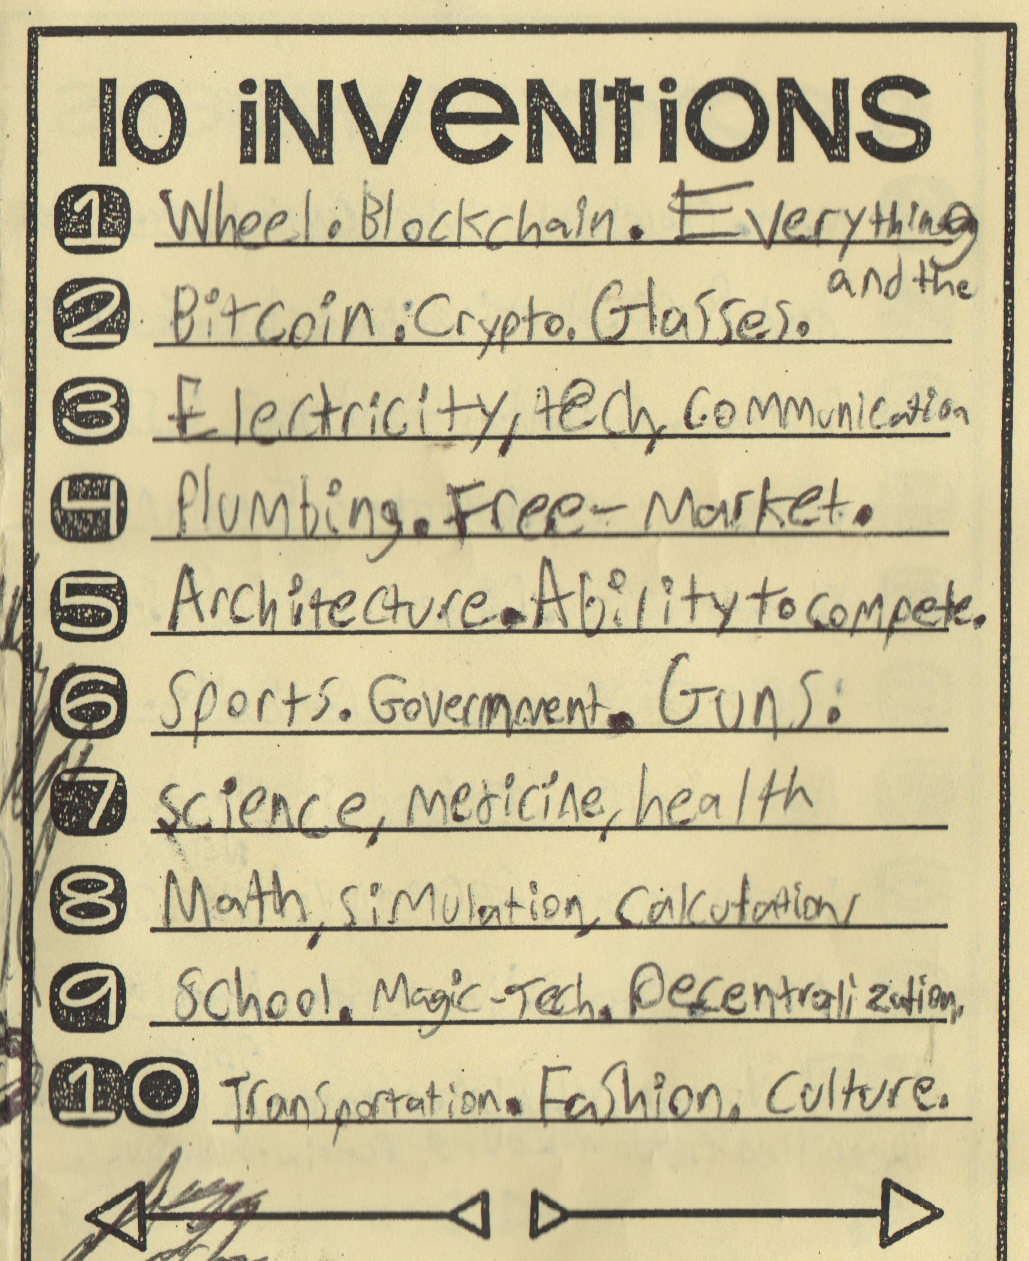 10 iNVeNtiONS
1 Wheel. Blockchain. Everything
and the
2 Bitcoin. Crypto. Glasses.
3 Electricity, tech, communication
4 Plumbing. Free-Market.
5 Architecture. Ability to compete.
6 Sports. Government. Guns.
7 science, medicine, health
8 Math, simulation, calculation,
9 School. Magic-Tech. Decentralization.
10 Transportation. Fashion. Culture.